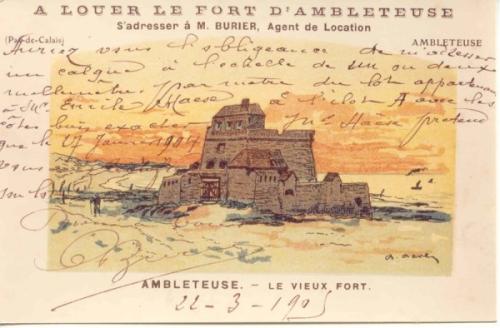 A LOUER LE FORT D'AMBLETEUSE
S'adresser à M. BURIER, Agent de Location
(Pas-de-Calais) AMBLETEUSE
Auriez vous l'obligeance de m'adresser
un calque à l'échelle de un ou deux
millimètres par mètre du lot appartenant
à Mr. Emile Haese à l'ilot A avec les
côtés bien exacts Mr Haese prétend
que le 27 Janvier 1905
vous
AMBLETEUSE. - LE VIEUX FORT.
22-3-1905